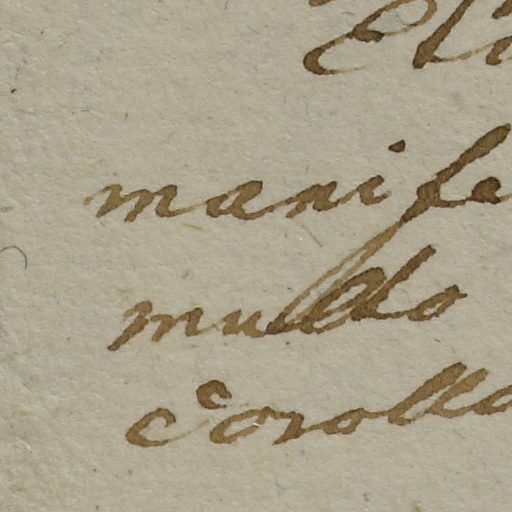 manife
multo
corolla